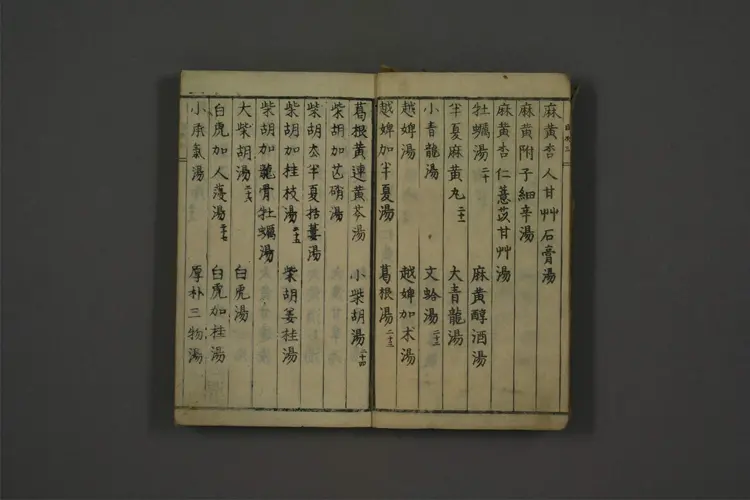 麻黄杏人甘艸石膏湯
麻黄附子細辛湯
麻黄杏仁薏苡甘艸湯
牡蠣湯二十 麻黄醇酒湯
半夏麻黄丸二十一 大青龍湯
小青龍湯 文蛤湯二十二
越婢湯 越婢加朮湯
越婢加半夏湯 葛根湯二十三
葛根黄連黄芩湯 小柴胡湯二十四
柴胡加芒硝湯
柴胡去半夏括蔞湯
柴胡加桂枝湯二十五 柴胡姜桂湯
柴胡加龍骨牡蠣湯
大柴胡湯二十六 白虎湯
白虎加人薓湯二十七 白虎加桂湯
小承氣湯 厚朴三物湯